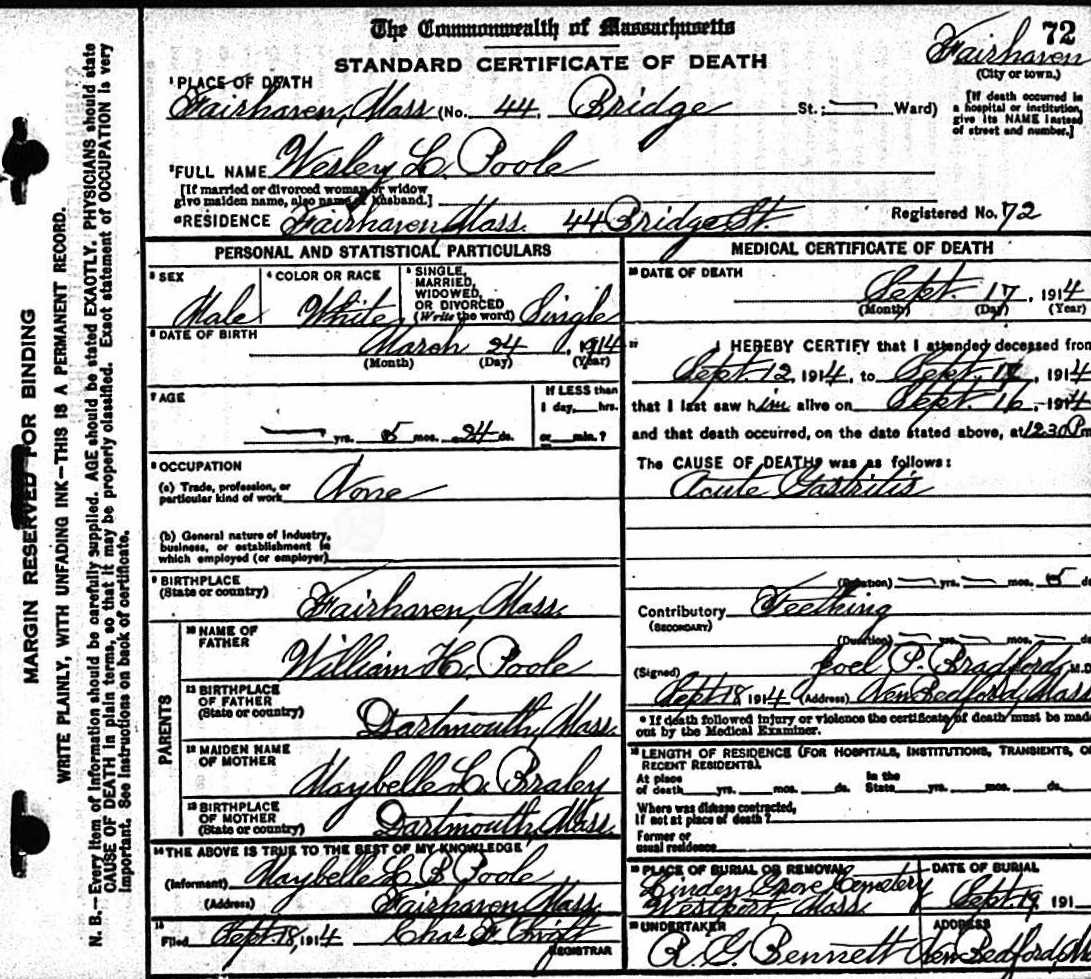 The Commonwealth of Massachusetts
72
STANDARD CERTIFICATE OF DEATH
Fairhaven
(City or town.)
1 PLACE OF DEATH
Fairhaven, Mass. (No. 44, Bridge St.; Ward)
[If death occurred in
a hospital or institution,
give its NAME instead
of street and number.]
2 FULL NAME Wesley L. Poole
[If married or divorced woman or widow
give maiden name, also name of husband.]
RESIDENCE Fairhaven, Mass. 44 Bridge St.
Registered No. 72
PERSONAL AND STATISTICAL PARTICULARS
3 SEX
Male
4 COLOR OR RACE
White
5 SINGLE,
MARRIED,
WIDOWED,
OR DIVORCED
(Write the word) Single
6 DATE OF BIRTH
March 24, 1914
(Month) (Day) (Year)
7 AGE
yrs. 5 mos. 24 ds.
If LESS than
1 day, hrs.
or min.?
8 OCCUPATION
(a) Trade, profession, or
particular kind of work None
(b) General nature of industry,
business, or establishment in
which employed (or employer)
9 BIRTHPLACE
(State or country)
Fairhaven, Mass.
PARENTS
10 NAME OF
FATHER
William H. Poole
11 BIRTHPLACE
OF FATHER
(State or country)
Dartmouth, Mass.
12 MAIDEN NAME
OF MOTHER
Maybelle L. Braley
13 BIRTHPLACE
OF MOTHER
(State or country)
Dartmouth, Mass.
14 THE ABOVE IS TRUE TO THE BEST OF MY KNOWLEDGE
(Informant) Maybelle L. B. Poole
(Address) Fairhaven, Mass.
15
Filed Sept. 18, 1914 Chas. F.
REGISTRAR
MEDICAL CERTIFICATE OF DEATH
16 DATE OF DEATH
Sept. 17, 1914
(Month) (Day) (Year)
17 I HEREBY CERTIFY that I attended deceased from
Sept. 12, 1914, to Sept. 17, 1914
that I last saw him alive on Sept. 16, 1914
and that death occurred, on the date stated above, at 12.30 P m
The CAUSE OF DEATH* was as follows:
Acute Gastritis
(Duration) yrs. mos. 5 ds
Contributory Teething
(SECONDARY)
(Duration) yrs. mos. ds
(Signed) Joel P. Bradford, M.D.
Sept 18, 1914 (Address) New Bedford, Mass
* If death followed injury or violence the certificate of death must be made
out by the Medical Examiner.
18 LENGTH OF RESIDENCE (FOR HOSPITALS, INSTITUTIONS, TRANSIENTS, OR
RECENT RESIDENTS).
At place
of death yrs. mos. ds.
In the
State yrs. mos. ds.
Where was disease contracted,
If not at place of death?
Former or
usual residence
19 PLACE OF BURIAL OR REMOVAL
Linden Grove Cemetery
Westport, Mass.
DATE OF BURIAL
Sept. 19, 191
20 UNDERTAKER
R. G. Bennett
ADDRESS
New Bedford, M
MARGIN RESERVED FOR BINDING
WRITE PLAINLY, WITH UNFADING INK—THIS IS A PERMANENT RECORD.
N. B.—Every item of information should be carefully supplied. AGE should be stated EXACTLY. PHYSICIANS should state
CAUSE OF DEATH in plain terms, so that it may be properly classified. Exact statement of OCCUPATION is very
important. See instructions on back of certificate.